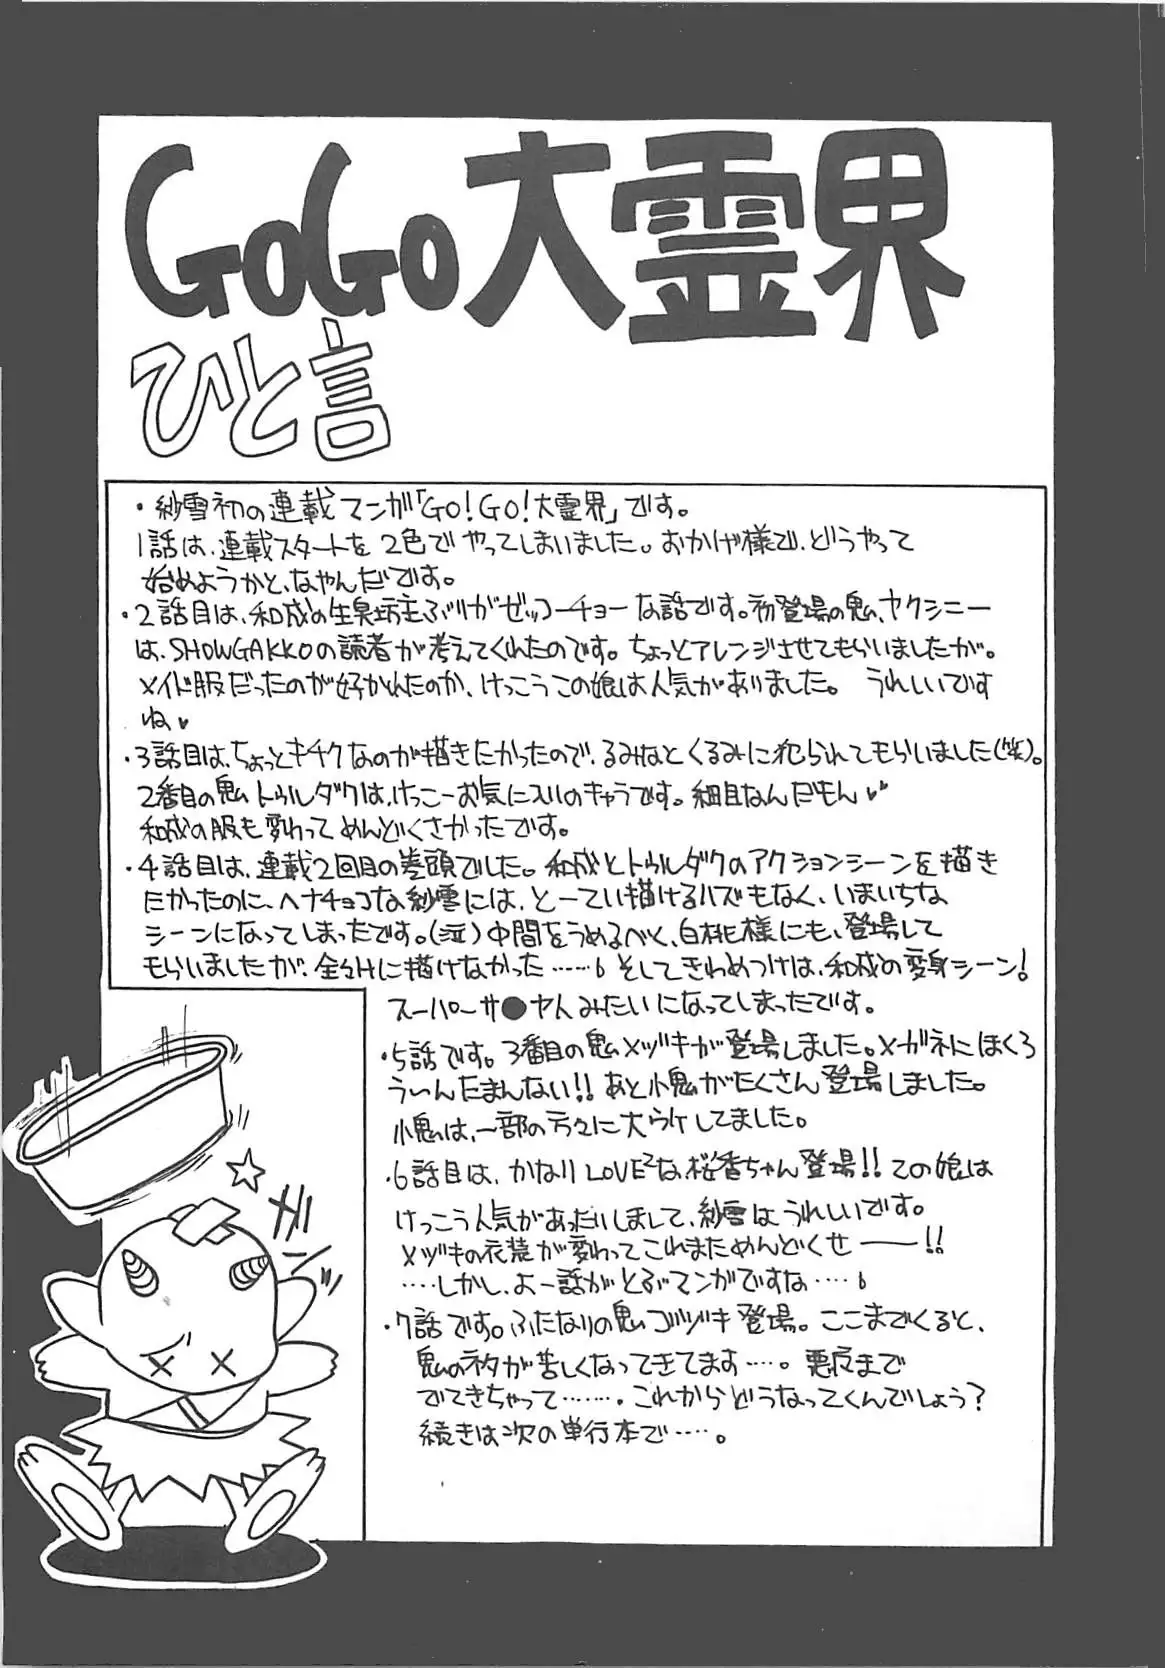 GoGo大霊界
ひと言
・紗雪初の連載マンガ「GO!GO!大霊界」です。
1話は、連載スタートを2色でやってしまいました。おかげ様で、どうやって
始めようかと、なやんだです。
・2話目は、和成の生臭坊主ぶりがゼッコーチョーな話です。初登場の鬼、ヤクシニー
は、SHOWGAKKOの読者が考えてくれたのです。ちょっとアレンジさせてもらいましたが。
メイド服だったのが好かれたのか、けっこうこの娘は人気がありました。うれしいです
ね♥
・3話目は、ちょっとキチクなのが描きたかったので、るみなとくるみに犯られてもらいました(笑)。
2番目の鬼トゥルダクは、けっこーお気に入いのキャラです。細目なんだもん♥♥
和成の服も変わってめんどくさかったです。
・4話目は、連載2回目の巻頭でした。和成とトゥルダクのアクションシーンを描き
たかったのに、ヘナチョコな紗雪には、とーてい描けるハズもなく、いまいちな
シーンになってしまったです。(泣)中間をうめるべく、白桃様にも、登場して
もらいましたが、全々Hに描けなかった……。そしてきわめつけは、和成の変身シーン!
スーパーサ●ヤ人みたいになってしまったです。
・5話です。3番目の鬼メヅキが登場しました。メガネにほくろ
う〜んたまんない!!あと小鬼がたくさん登場しました。
小鬼は、一部の方々に大ウケしてました。
・6話目は、かなりLOVE²な、桜香ちゃん登場!!この娘は
けっこう人気があったりしまして、紗雪はうれしいです。
メヅキの衣装が変わってこれまためんどくせーー!!
……しかし、よー話がとぶマンガですな……。
・7話です。ふたなりの鬼ゴヅキ登場。ここまでくると、
鬼のネタが苦しくなってきてます……。悪魔まで
でてきちゃって…….これからどうなってくんでしょう?
続きは次の単行本で……。